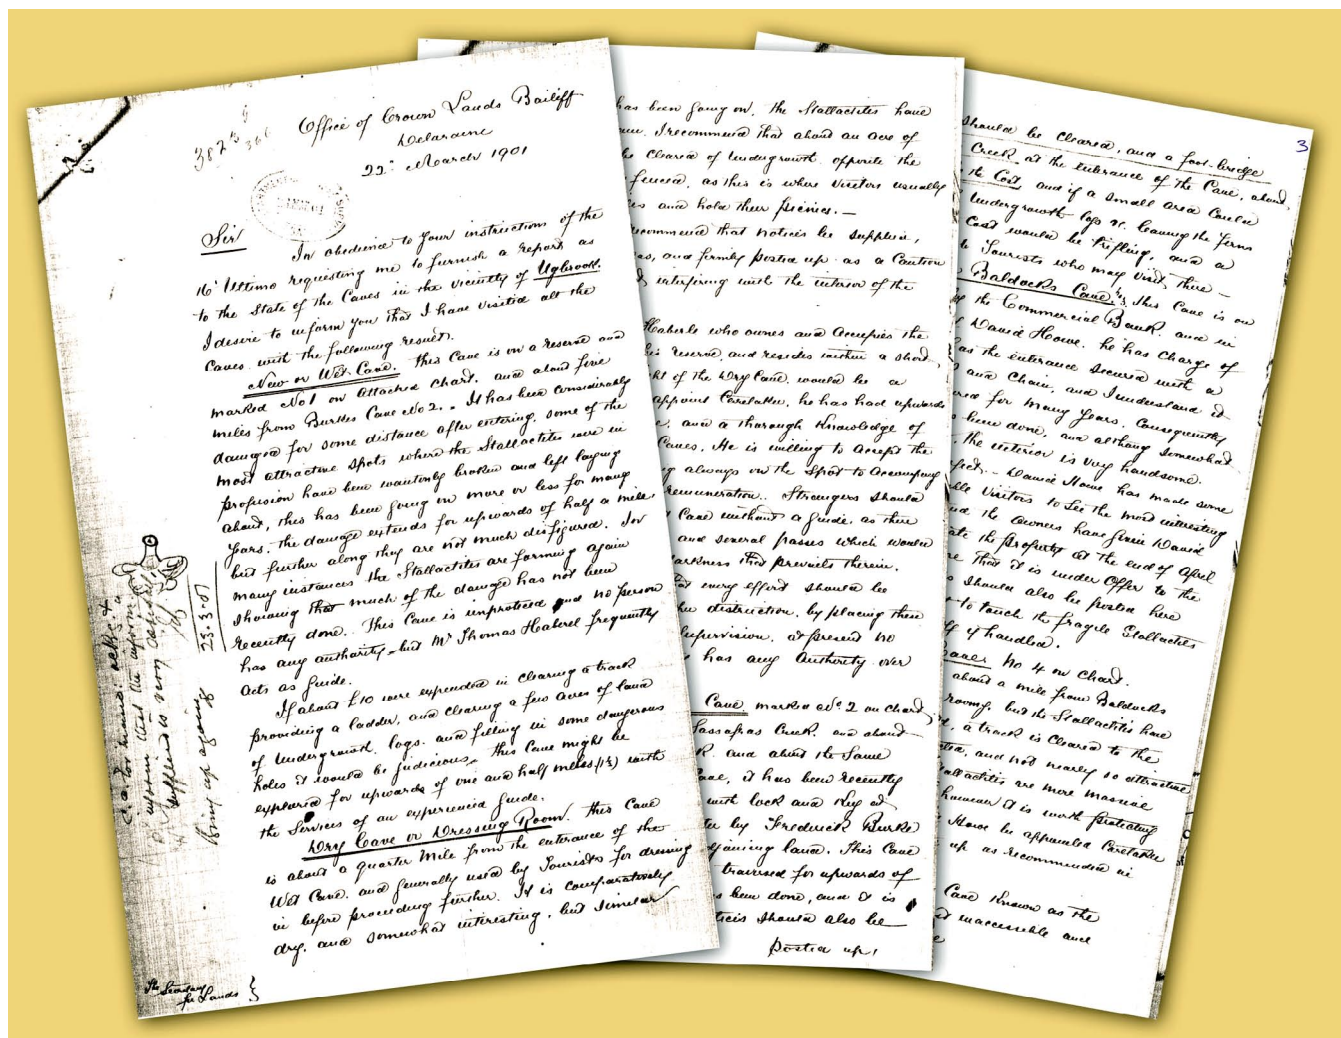 Office of Crown Lands Bailiff
Deloraine
22nd March 1901
Sir
In obedience to your instructions of the
16th Ultimo requesting me to furnish a report as
to the State of the Caves in the vicinity of Ugbrook.
I desire to inform you that I have visited all the
Caves with the following result.
New or Wet Cave. This Cave is on a reserve and
marked No 1 on attached chart. and about five
miles from Burkes Cave No 2. It has been considerably
damaged for some distance after entering, some of the
most attractive spots where the Stallactites were in
profusion have been wantonly broken and left laying
about, this has been going on more or less for many
years. the damage extends for upwards of half a mile
but further along they are not much disfigured. In
many instances the Stallactites are forming again
showing that much of the damage has not been
recently done. This Cave is unprotected and no person
has any authority but Mr Thomas Haberel frequently
acts as guide.
If about £10 were expended in clearing a track
providing a ladder, and clearing a few acres of land
of undergrowth, logs. and filling in some dangerous
holes it would be judicious, this Cave might be
explored for upwards of one and half miles (1½) with
the services of an experienced guide.
Dry Cave or Dressing Room. This Cave
is about a quarter mile from the entrance of the
Wet Cave. and generally used by Tourists for dressing
in before proceeding further. It is comparatively
dry, and somewhat interesting, but similar
The Secretary
for Lands
23-3-01
has been going on. the Stallactites have
I recommend that about an acre of
be cleared of undergrowth opposite the
fenced, as this is where visitors usually
and hold their picnics.
recommend that notices be supplied,
and firmly posted up as a Caution
interfering with the interior of the
Haberle who owns and occupies the
reserve, and resides within a short
of the Dry Cave. would be a
appoint Caretaker, he has had upwards
and a thorough knowledge of
Caves. He is willing to accept the
always on the spot to accompany
remuneration. Strangers should
Cave without a guide, as there
and several passes which would
darkness that prevails therein.
every effort should be
distruction, by placing these
supervision, at present no
has any authority over
Cave. marked No 2 on chart,
Sassafras Creek, and about
and about the same
Cave, it has been recently
with lock and key at
by Frederick Burke
adjoining land. This Cave
traversed for upwards of
been done, and it is
notices should also be
posted up,
3
should be cleared, and a foot-bridge
Creek at the entrance of the Cave, about
the Cost and if a small area
undergrowth logs &c. leaving the ferns
Cost would be trifling, and a
Tourists who may visit there
Baldocks Cave No 3. This Cave is on
the Commercial Bank. and in
David Howe. he has charge of
has the entrance secured with a
and Chain, and I understand it
for many years. Consequently
been done, and although somewhat
the interior is very handsome.
David Howe has made some
visitors to see the most interesting
and the owners have given David
the property at the end of April
that it is under Offer to the
should also be posted here
to touch the fragile Stallactites
if handled.
No 4 on chart.
about a mile from Baldocks
roomy, but the Stallactites have
a track is cleared to the
and not nearly so attractive
Stallactites are more massive
however it is worth protecting
Howe be appointed Caretaker
up as recommended in
Cave known as the
inaccessible and